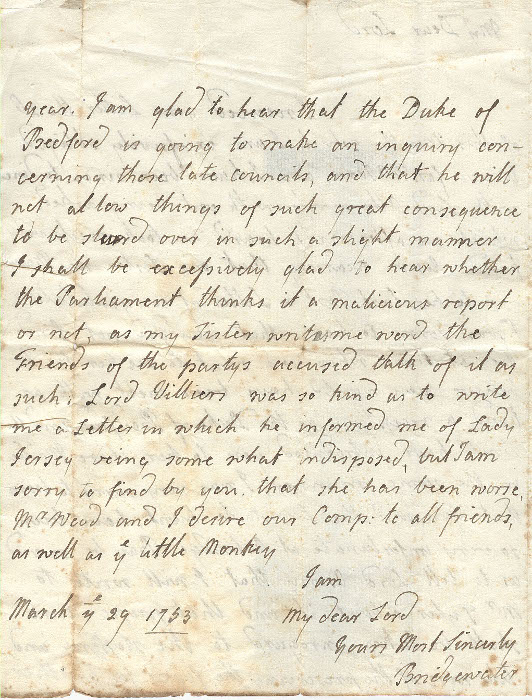 year. I am glad to hear that the Duke of
Bedford is going to make an inquiry con-
cerning those late councils, and that he will
not allow things of such great consequence
to be slurd over in such a slight manner
I shall be excessively glad to hear whether
the Parliament thinks it a malicious report
or not, as my Sister writes me word the
Friends of the partys accused talk of it as
such; Lord Villiers was so kind as to write
me a Letter in which he informed me of Lady
Jersey being some what indisposed, but I am
sorry to find by you that she has been worse,
Mr Wood and I desire our Comp: to all friends,
as well as ye little Monkey
I am
March ye 29 1753 My dear Lord
Yours Most Sincerly
Bridgewater
My Dear Lord